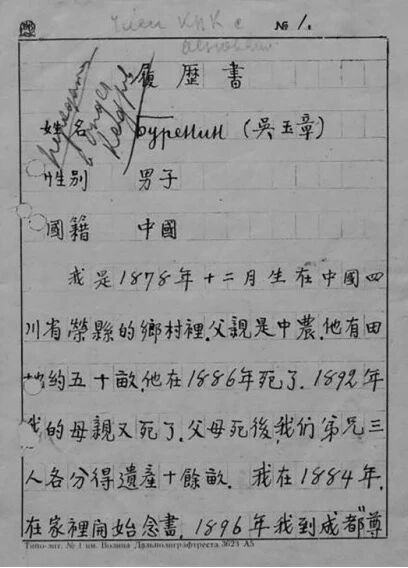 Член ККК с
№ 1.
履歷書
姓名 Буренин (吳玉章)
性別 男子
國籍 中國
我是1878年十二月生在中國四
川省榮縣的鄉村裡.父親是中農.他有田
地約五十畝.他在1886年死了.1892年
我的母親又死了.父母死後,我们弟兄三
人各分得遺產十餘畝. 我在1884年.
在家裡開始念書.1896年我到成都"尊
Типо-лит. № 1 им. Волина Дальполиграфтреста. 3623 А5